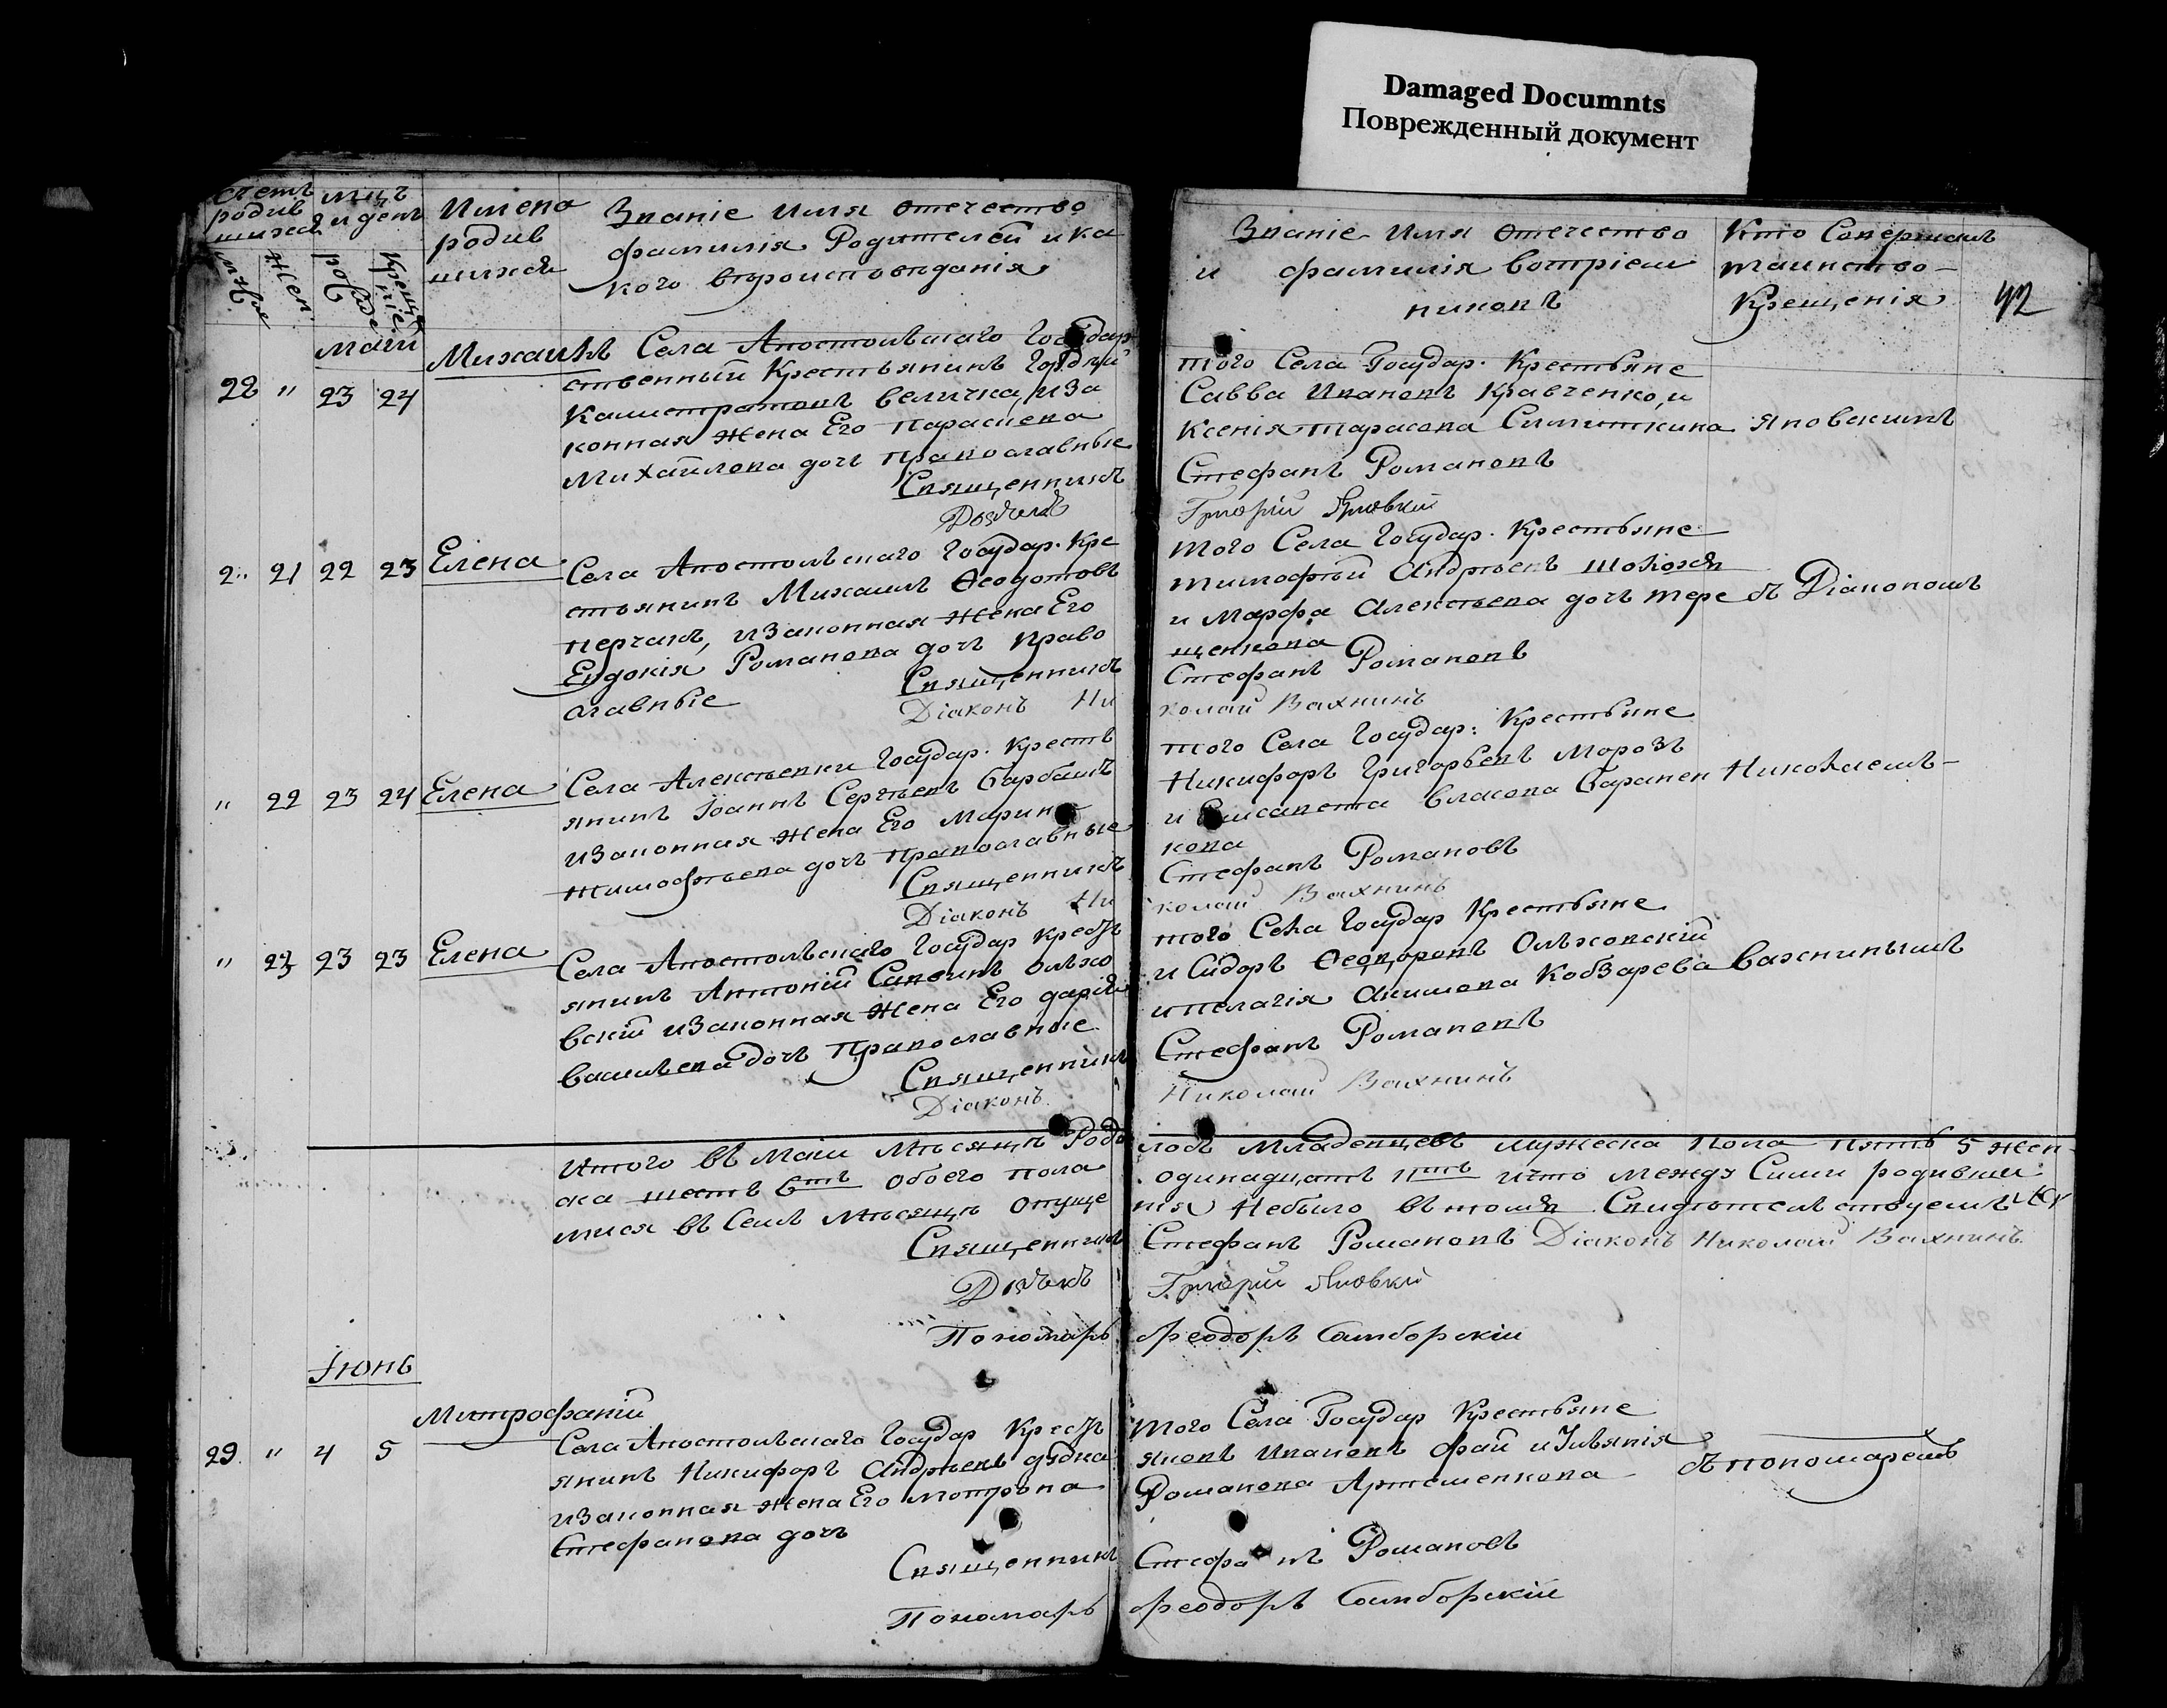 Damaged Documnts
Поврежденный документ
Счетъ родив шихся
Мцъ и день
Имена родив шихся
Званіе имя отечество
фамилія Родителей и ка
кого вѣроисповѣданія
Муж.
Жен.
рожде.
Креще ніе.
Званіе имя отечество
и фамилія воспріем
никовъ
Кто Совершалъ
таинство
Крещенія
42
Маій
28 " 23 24
Михаилъ
Села Апостольскаго Государ
ственный Крестьянинъ
Калистратовъ Величка, иза
конная жена Его Параскева
Михайлова дочь Православные
Священникъ
Дячекъ
того Села Государ. Крестьяне
Савва Ивановъ Кравченко, и
Ксенія Тарасова
Яновскимъ
Стефанъ Романовъ
Григорій Яновкий
2" 21 22 23
Елена
Села Апостольскаго Государ. Кре
стьянинъ Михаилъ Ѳеодотовъ
изаконная жена Его
Евдокія Романова дочь право
славные
Священникъ
Діаконъ Ни
того Села Государ. Крестьяне
Тимофей Андреевъ
и Марфа Алексѣева дочь Тере
щенкова
съ Діакономъ
Стефанъ Романовъ
колай Вахнинъ
" 22 23 24
Елена
Села Алексѣевки Государ. Кресть
янинъ Іоаннъ Сергѣевъ Барбашъ
изаконная жена Его Марин
Тимофѣева дочь Православные
Священникъ
Діаконъ Ни
того Села Государ: Крестьяне
Никифоръ Григорьевъ Морозъ
и Елисавета Власова Баранен
кова
Николаемъ
Стефанъ Романовъ
колай Вахнинъ
" 23 23 23
Елена
Села Апостольскаго Государ Кресть
янинъ Антоній Саввинъ Ольхо
вскій изаконная жена Его Дарія
Васильева дочь Православные
Священникъ
Діаконъ
того Села Государ Крестьяне
и Сидоръ Ѳеодоровъ Ольховскій
ипелагія Акимова Кобзарева
Вахнинымъ
Стефанъ Романовъ
Николай Вахнинъ
Итого въ Маіи Мѣсяцѣ Роди
лось Младенцевъ мужеска пола пять 5 жен
ска шесть 6ть обоего пола
одинадцать 11ть ичто между Сими родивши
мися въ Семъ Мѣсяцѣ опуще
нія Небыло въ томъ Свидѣтельствуемъ
Священникъ
Стефанъ Романовъ Діаконъ Николай Вахнинъ
Дячекъ
Григорій Яновкий
Пономарь
Ѳеодоръ Самборскій
Іюнь
29. " 4 5
Митрофаній
Села Апостольскаго Государ Кресть
янинъ Никифоръ Андреевъ Дудка
изаконная жена Его Мотрона
Стефанова дочь
Священникъ
Пономарь
того Села Государ Крестьяне
Яковъ Ивановъ Фай и Ульянія
Романова Артеменкова
съ пономаремъ
Стефанъ Романовъ
Ѳеодоръ Самборскій